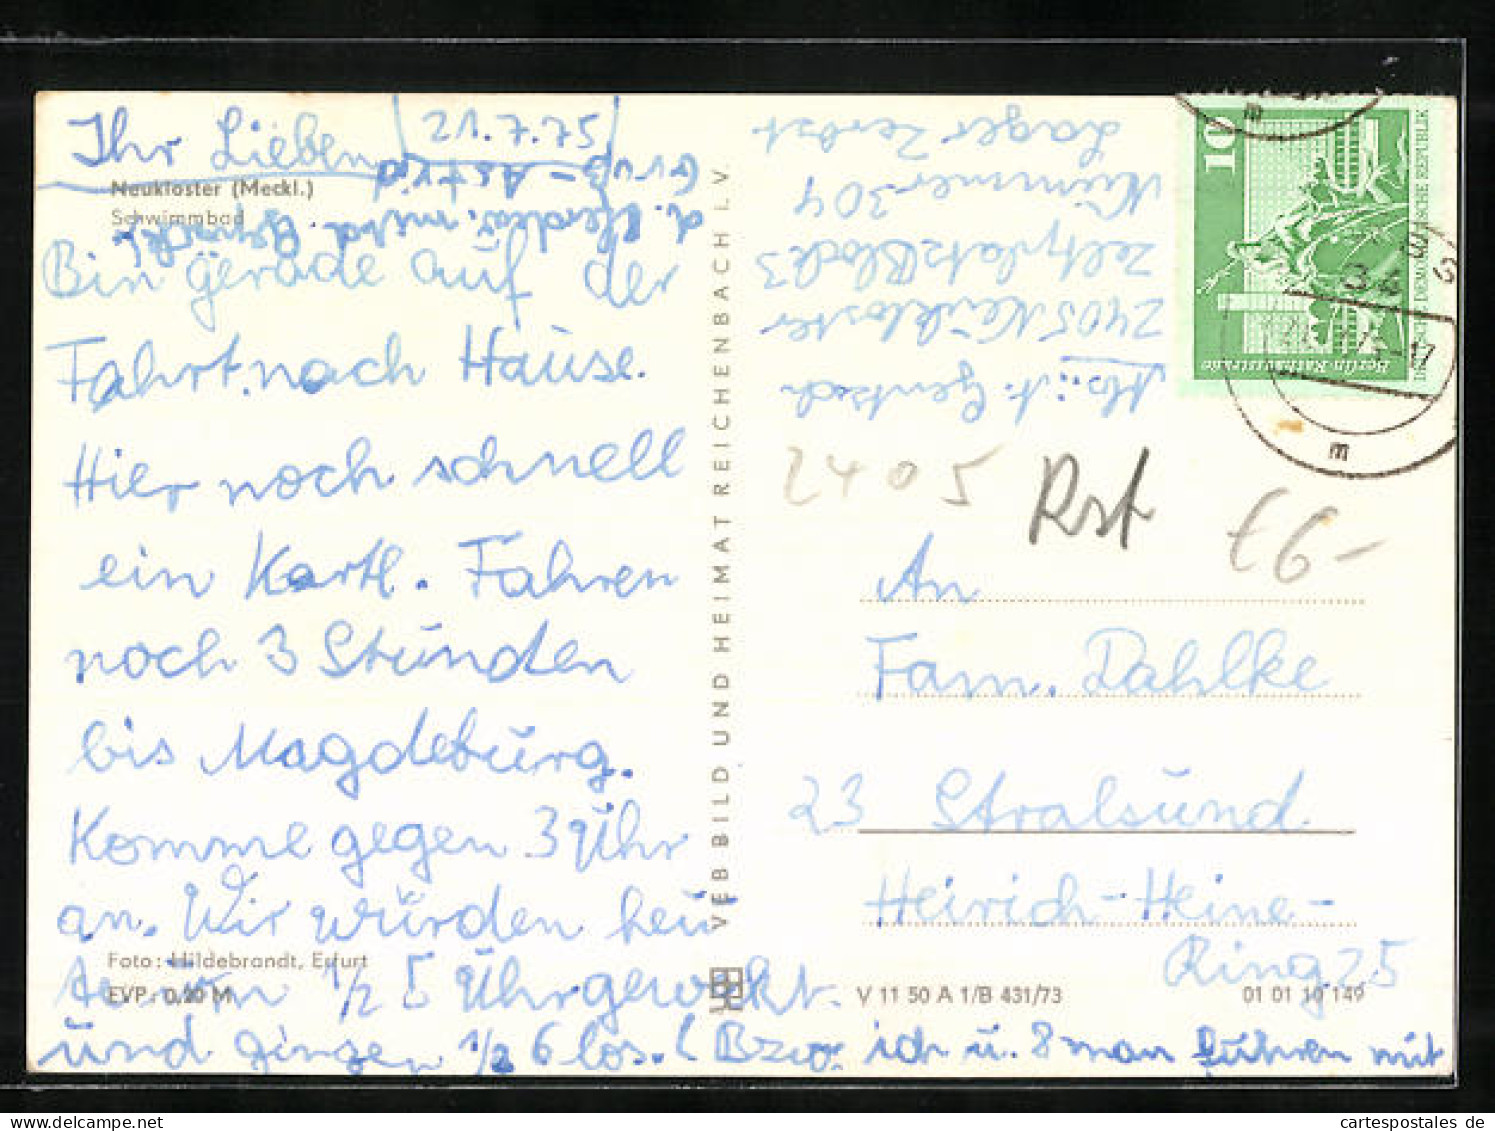 21.7.75
Ihr Lieben
Neukloster (Meckl.)
Schwimmbad
Bin gerade auf der
Fahrt nach Hause.
Hier noch schnell
ein Kartl. Fahren
noch 3 Stunden
bis Magdeburg.
Komme gegen 3 Uhr
an. Wir würden heu
te von 1/2 5 Uhr geweckt.
und gingen 1/2 6 los. ( Bzw. ich u. 8 man führen mit
Gruß - Astrid
Foto: Hildebrandt, Erfurt
EVP: 0,20 M
VEB BILD UND HEIMAT REICHENBACH I. V.
Abs.: A. Gentsch
2405 Neukloster
Zeltplatz Block 3
Nummer 304
Lager Zerbst
10
Berlin-Rathausstraße
DEUTSCHE DEMOKRATISCHE REPUBLIK
2405
Rst
€6-
An
Fam. Dahlke
23 Stralsund
Heirich-Heine-
Ring 25
V 11 50 A 1/B 431/73
01 01 10 149
cartespostales de